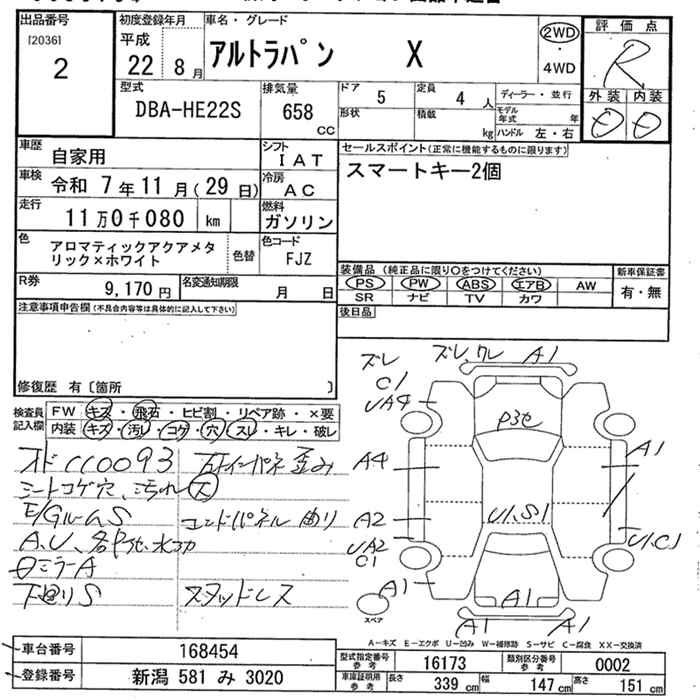 出品番号
[2036]
2
初度登録年月
平成
22 8 月
車名・グレード
アルトラパン X
2WD
・
4WD
評価点
R
外装 内装
型式
DBA-HE22S
排気量
658
cc
ドア 5
定員 4 人
形状
積載 kg
ディーラー・並行
モデル年式 年
ハンドル 左・右
車歴
自家用
シフト
IAT
車検
令和 7年11月(29日)
冷房
AC
走行
11万0千080 km
燃料
ガソリン
色
アロマティックアクアメタ
リック×ホワイト
色替
色コード
FJZ
R券
9,170円
名変通知期限
月 日
セールスポイント(正常に機能するものに限ります)
スマートキー2個
装備品(純正品に限り○をつけてください)
PS PW ABS エアB AW
SR ナビ TV カワ
新車保証書
有・無
後日品
注意事項申告欄(不具合内容等は具体的に記入して下さい)
修復歴 有〔箇所 〕
検査員
記入欄
FW キズ・飛石・ヒビ割・リペア跡・×要
内装 キズ・汚レ・コゲ・穴・スレ・キレ・破レ
シートコゲ穴、汚れ
E/GルームS
コンドパネル曲り
ミラーA
下廻りS
スタッドレス
ズレ
C1
UA4
ズレ,ワレ A1
A4
A1
A2
UA2
C1
U1.S1
U1,C1
A1
A1
A1
A1
スペア
A−キズ E−エクボ U−凹み W−補修跡 S−サビ C−腐食 XX−交換済
車台番号
168454
登録番号
新潟 581 み 3020
型式指定番号
参考
16173
類別区分番号
参考
0002
車庫証明用
参考
長さ 339 cm 幅 147 cm 高さ 151 cm